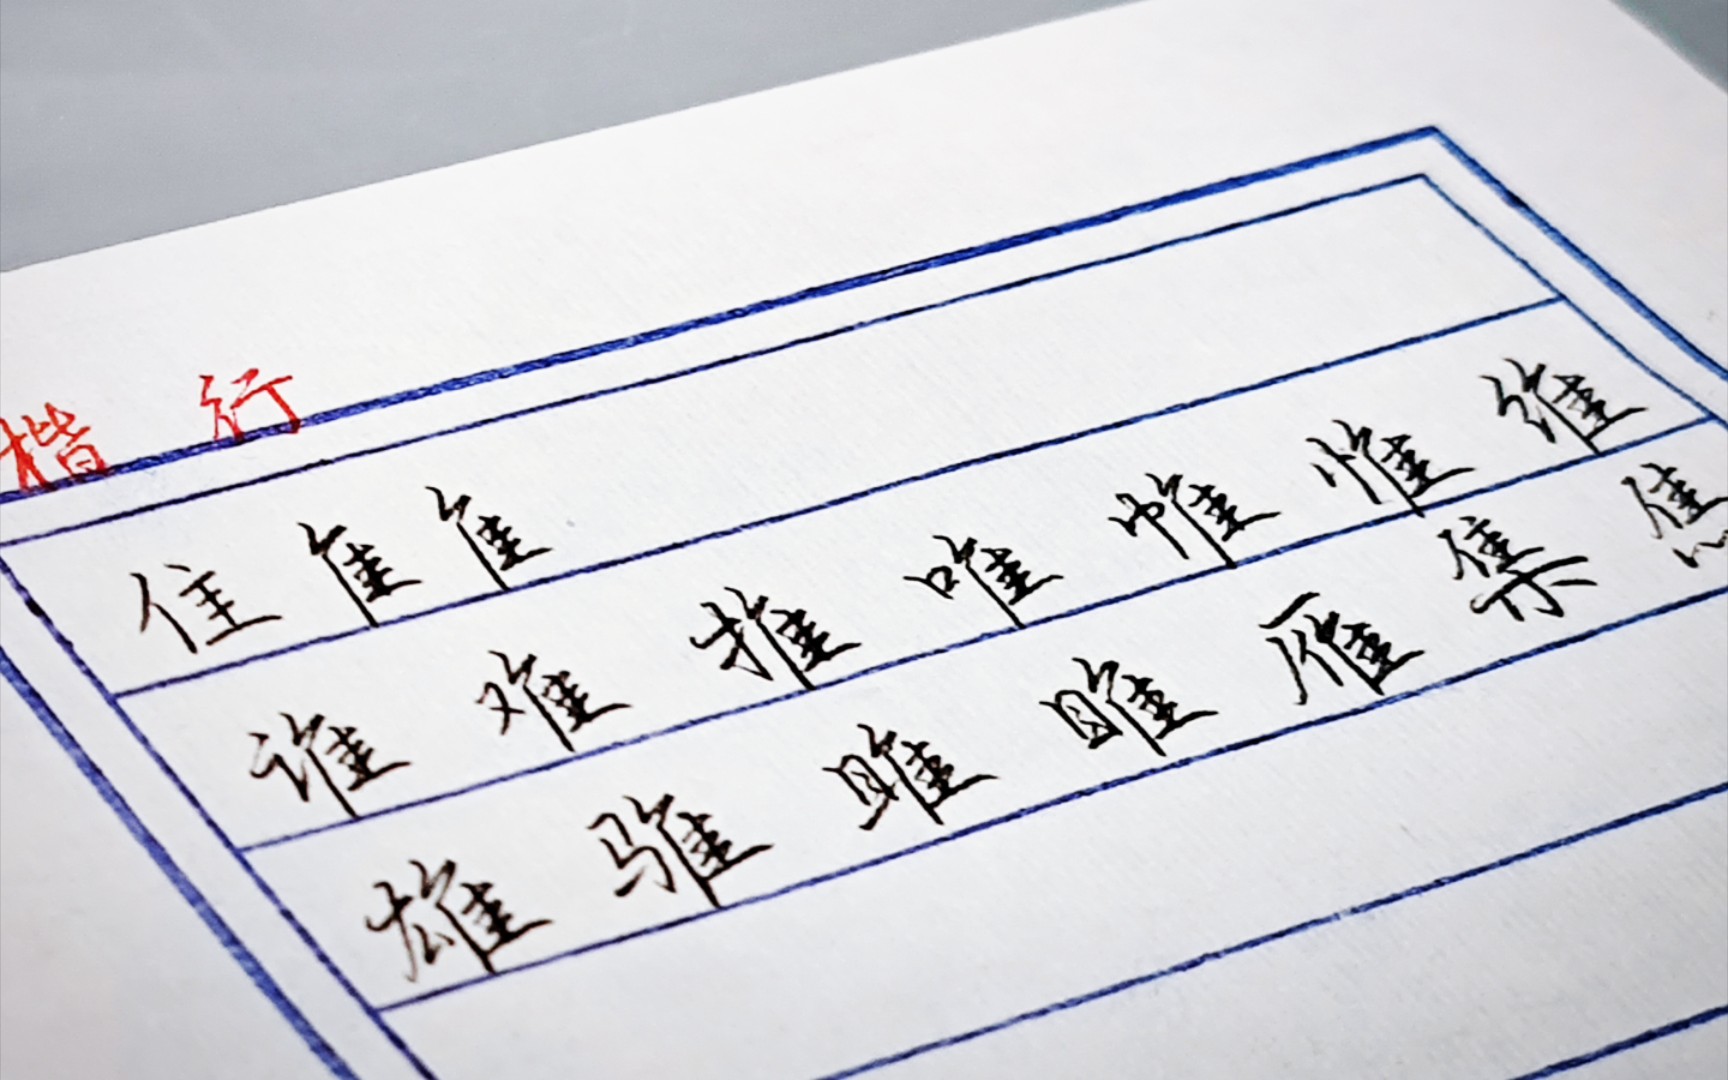 楷 行
住 隹 隹
谁 难 推 唯 帷 惟 维
雄 骓 雎 睢 雁 集 焦